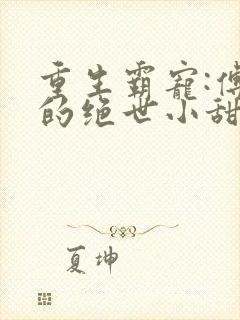 重生霸宠:傅
的绝世小甜
夏坤